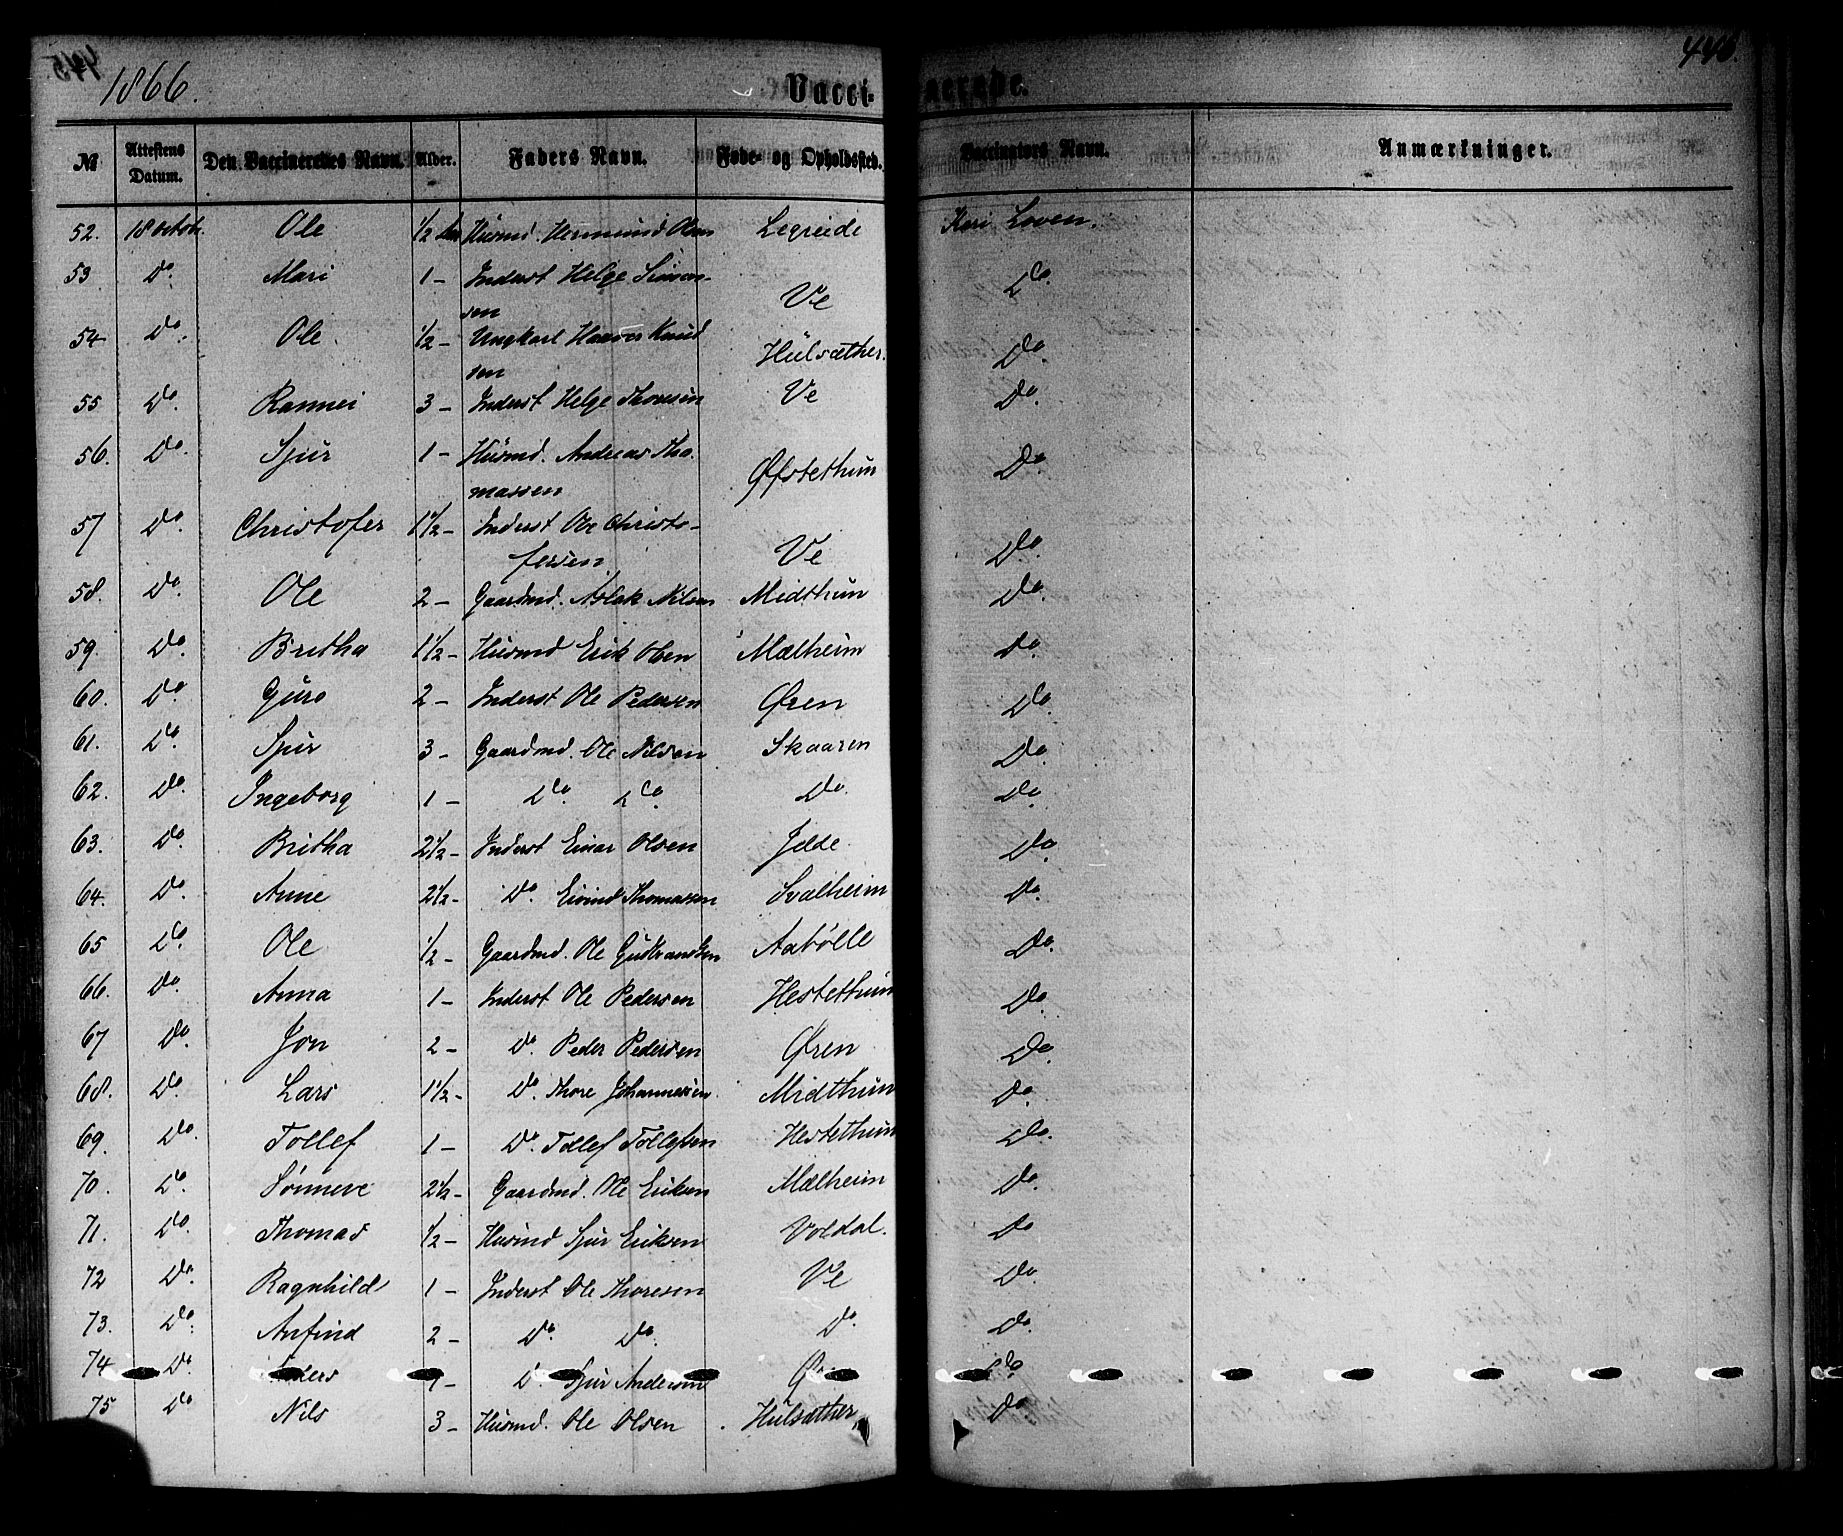 1866.
Vacci-
nerede.
446.
№ Attestens Datum. Den Vaccineredes Navn. Alder. Faders Navn. Føde- og Opholdssted. Vaccinators Navn. Anmærkninger.
52. 18 octob. Ole 1/2 Husmd. Hermund Olsen Legreide Kari Loven.
53 Do. Mari 1 - Inderst Helge Simon-
sen Ve Do.
54 Do. Ole 1/2 - Ungkarl Haavor Knud
sen Hulsæther. Do.
55 Do. Rannei 3 - Inderst Helge Thomsen Ve Do.
56. Do. Sjur 1 - Husmd. Andreas Tho-
massen Øfstethun Do.
57 Do. Christofer 1 1/2 - Inderst Ole Christo-
fersen Ve Do.
58. Do. Ole 2 - Gaardmd. Aslak Nilsen Midthun Do.
59. Do. Britha 1 1/2 - Husmd Erik Olsen Mælheim Do.
60. Do. Guro 2 - Inderst Ole Pedersen Øren Do.
61. Do. Sjur 3 - Gaardmd. Ole Nilsen Skaaren Do.
62. Do. Ingeborg 1 - Do. Do. Do. Do.
63. Do. Britha 2 1/2 - Inderst Einar Olsen Jelde Do.
64. Do. Anne 2 1/2 - Do. Eivind Thomassen Svalheim Do.
65 Do. Ole 1/2 - Gaardmd. Ole Gudbrandsen Aabølle Do.
66. Do. Anna 1 - Inderst Ole Pedersen Hestethun Do.
67 Do. Jon 2 - Do. Peder Pedersen Øren Do.
68. Do. Lars 1 1/2 - Do. Thore Johannessen. Midthun Do.
69. Do. Tollef 1 - Do. Tollef Tollefsen Hestethun Do.
70. Do. Sønneve 2 1/2 - Gaardmd. Ole Eriksen Mælheim Do.
71. Do. Thomas 1/2 - Husmd Sjur Eriksen Voldal. Do
72 Do. Ragnhild 1 - Inderst Ole Thoresen Ve Do.
73. Do. Anfind 2 - Do. Do. Do. Do.
74 Do. Anders 1 - Do. Sjur Andersen Do.
75 Do Nils 3 - Husmd. Ole Olsen Hulsæther. Do.